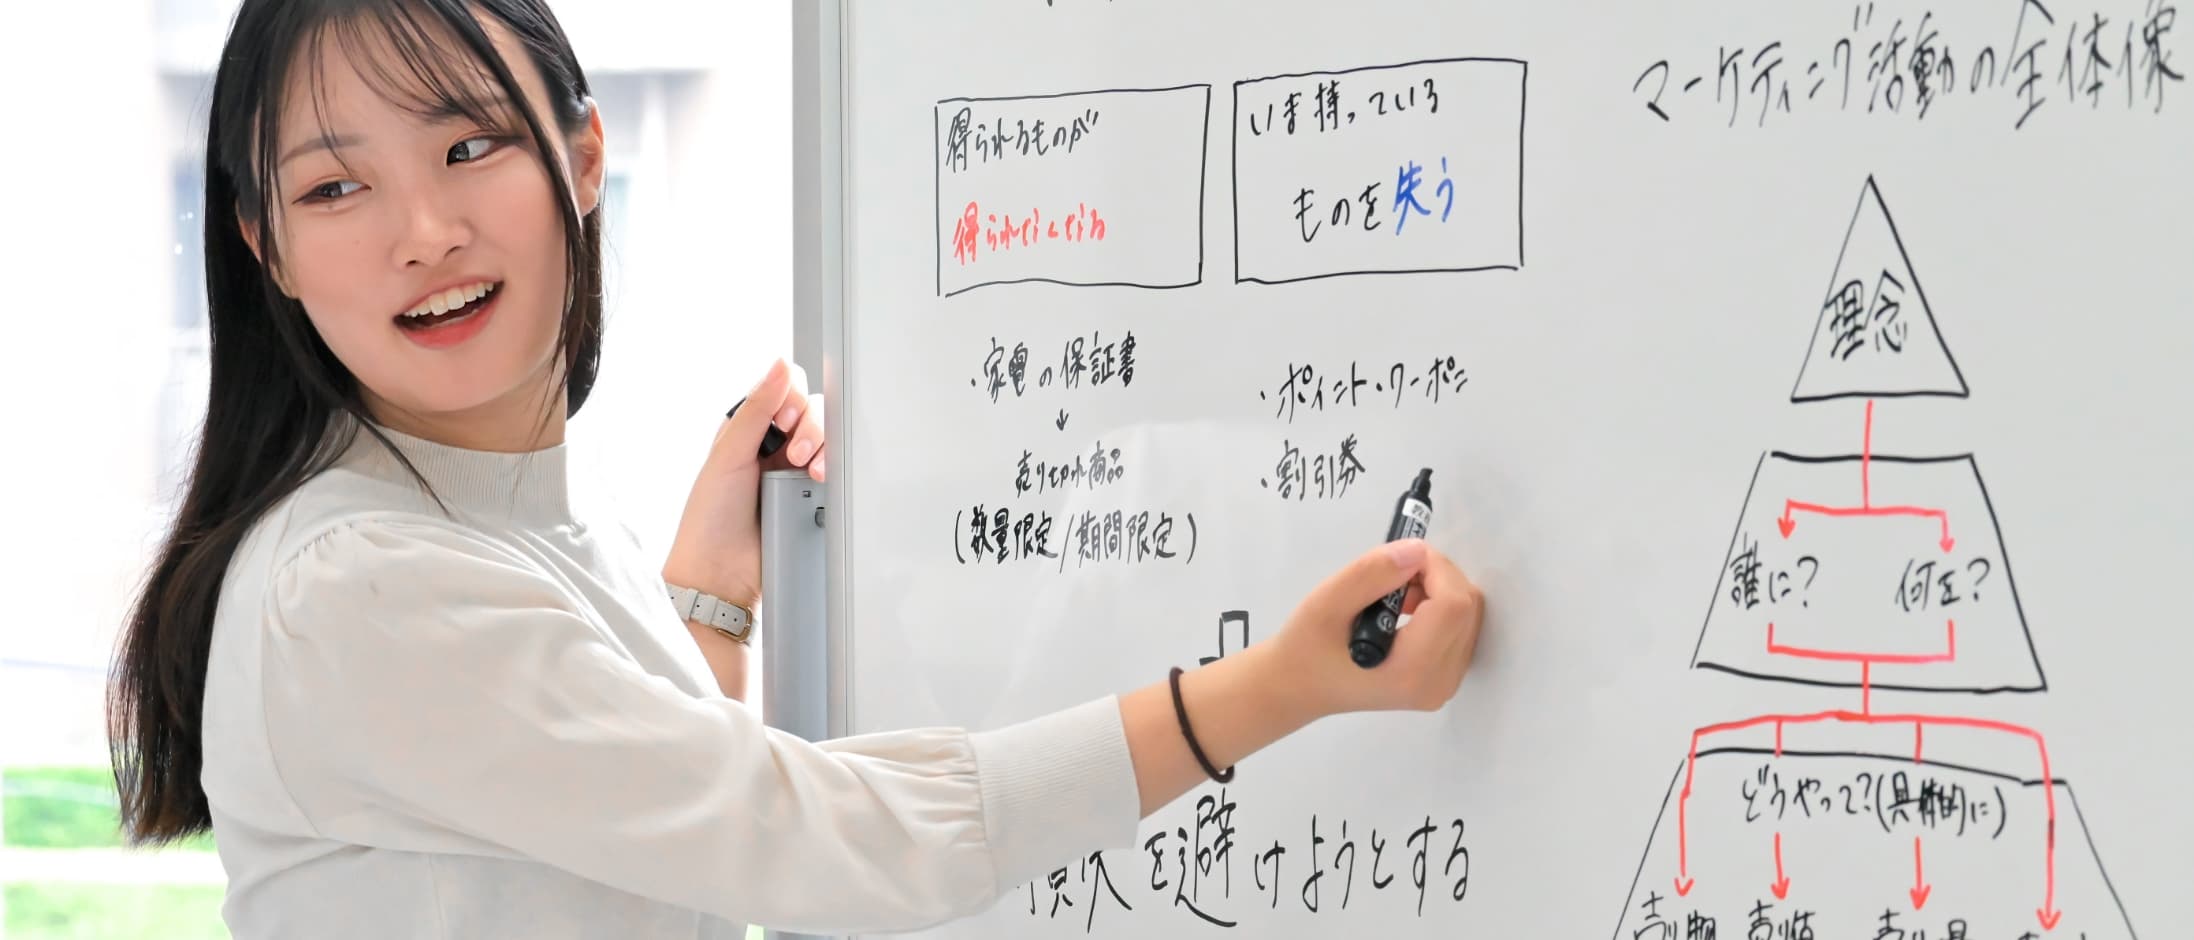 得られるものが
得られなくなる
いま持っている
ものを失う
・家電の保証書
↓
売り切れ商品
(数量限定/期間限定)
・ポイント・クーポン
・割引券
を避けようとする
マーケティング活動の全体像
理念
誰に? 何を?
どうやって?(具体的に)